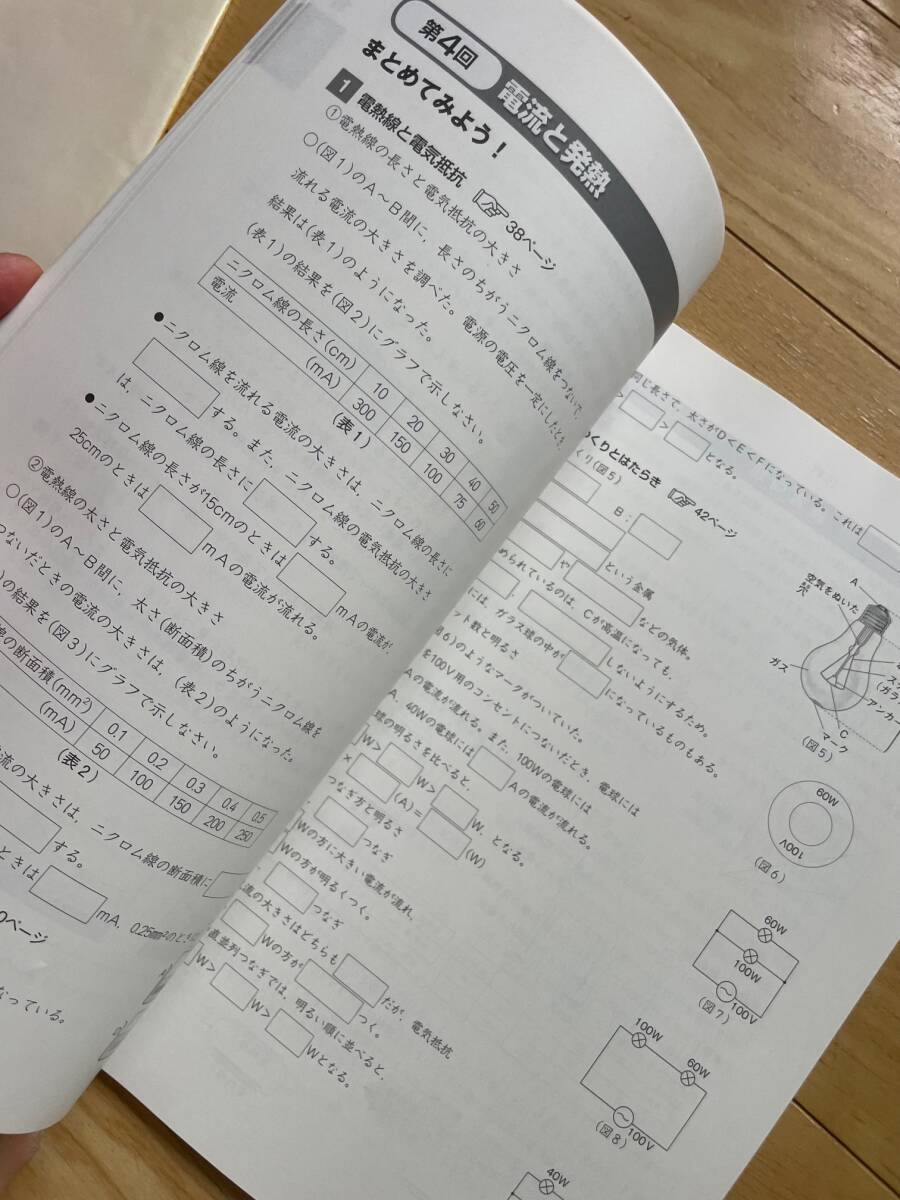 第4回 電流と発熱
まとめてみよう！
1 電熱線と電気抵抗 38ページ
①電熱線の長さと電気抵抗の大きさ
○(図1)のA～B間に，長さのちがうニクロム線をつないで，
流れる電流の大きさを調べた。電源の電圧を一定にしたとき
結果は(表1)のようになった。
(表1)の結果を(図2)にグラフで示しなさい。
ニクロム線の長さ(cm) 10 20 30 40 50
電流 (mA) 300 150 100 75 60
(表1)
●ニクロム線を流れる電流の大きさは，ニクロム線の長さに
する。また，ニクロム線の電気抵抗の大きさ
は，ニクロム線の長さに する。
●ニクロム線の長さが15cmのときは mAの電流が，
25cmのときは mAの電流が流れる。
②電熱線の太さと電気抵抗の大きさ
○(図1)のA～B間に，太さ(断面積)のちがうニクロム線を
つないだときの電流の大きさは，(表2)のようになった。
の結果を(図3)にグラフで示しなさい。
の断面積(mm²) 0.1 0.2 0.3 0.4 0.5
(mA) 50 100 150 200 250
(表2)
流の大きさは，ニクロム線の断面積に
する。
ときは mA，0.25mm²のとき
0ページ
なっている。
同じ長さで，太さがD＜E＜Fになっている。これは
＞ ＞ となる。
くりとはたらき 42ページ
くり(図5)
B：
という金属
や などの気体。
められているのは，Cが高温になっても，
しないようにするため。
には，ガラス球の中が になっているものもある。
ット数と明るさ
図6)のようなマークがついていた。
を100V用のコンセントにつないだとき，電球には
Aの電流が流れる。また，100Wの電球には
A，40Wの電球には Aの電流が流れる。
球の明るさを比べると，
W＞ W＞ W，となる。
× (A)＝ (W)
つなぎ方と明るさ
つなぎ
Wの方に大きい電流が流れ，
Wの方が明るくつく。
つなぎ
流の大きさはどちらも だが，電気抵抗
Wの方が つく。
直並列つなぎでは，明るい順に並べると，
W＞ W＞ Wとなる。
A
空気をぬいた
穴
ガス
アンカー
C
マーク
(図5)
60W
100V
(図6)
60W
100W
100V
(図7)
100W
60W
100V
(図8)
40W